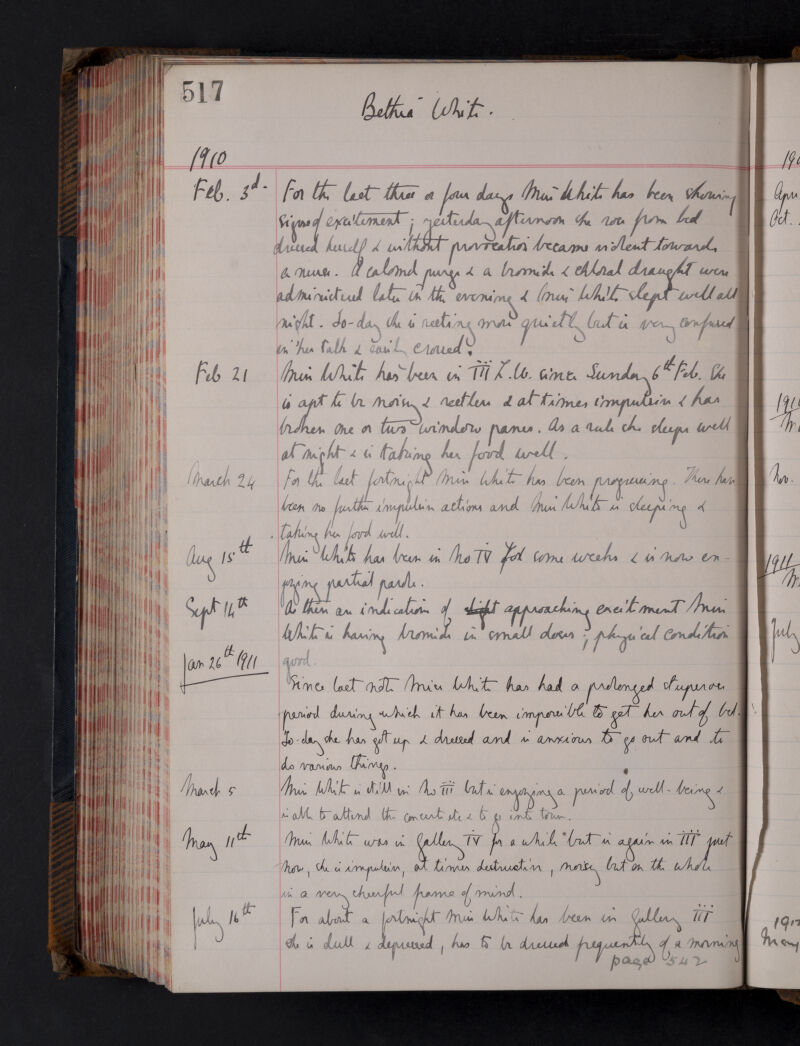 517
Bethia White.
1910
Feb. 3d. For the last three or four days Miss White has been showing
signs of excitement; yesterday afternoon she rose from bed
dressed herself & without provocation became violent towards
a nurse. A calomel purge & a bromide & chloral draught were
administered later in the evening & Miss White slept well all
night. To-day she is resting more quietly but is very confused
in her talk & easily crossed.
Feb 21 Miss White has been in III L.W. since Sunday 6th Feb. She
is apt to be noisy & restless & at times impulsive & has
broken one or two window panes. As a rule she sleeps well
at night & is taking her food well.
March 24 For the last fortnight Miss White has been progressing. There has
been no further impulsive actions and Miss White is sleeping &
taking her food well.
Aug 15th Miss White has been in No IV for some weeks & is now en-
joying partial parole.
Sept 14th As there an indication of slight approaching excitement Miss
White is having bromide in small doses; physical condition
good.
Jan 26th 1911
Since last note Miss White has had a prolonged stuporous
period during which it has been impossible to get her out of bed.
To-day she has got up & dressed and is anxious to go out and to
do various things.
March 5 Miss White is still in No III but is enjoying a period of well-being &
is able to attend the concert etc & to go into town.
May 11th Miss White was in Gallery IV for a while but is again in III just
now, she is impulsive, at times destructive, noisy but on the whole
in a very cheerful frame of mind.
July 16th For about a fortnight Miss White has been in Gallery III
she is dull & depressed, has to be dressed frequently of a morning
page 542
190
Apri
Oct.
1910
Nov.
1911
July
1912
May